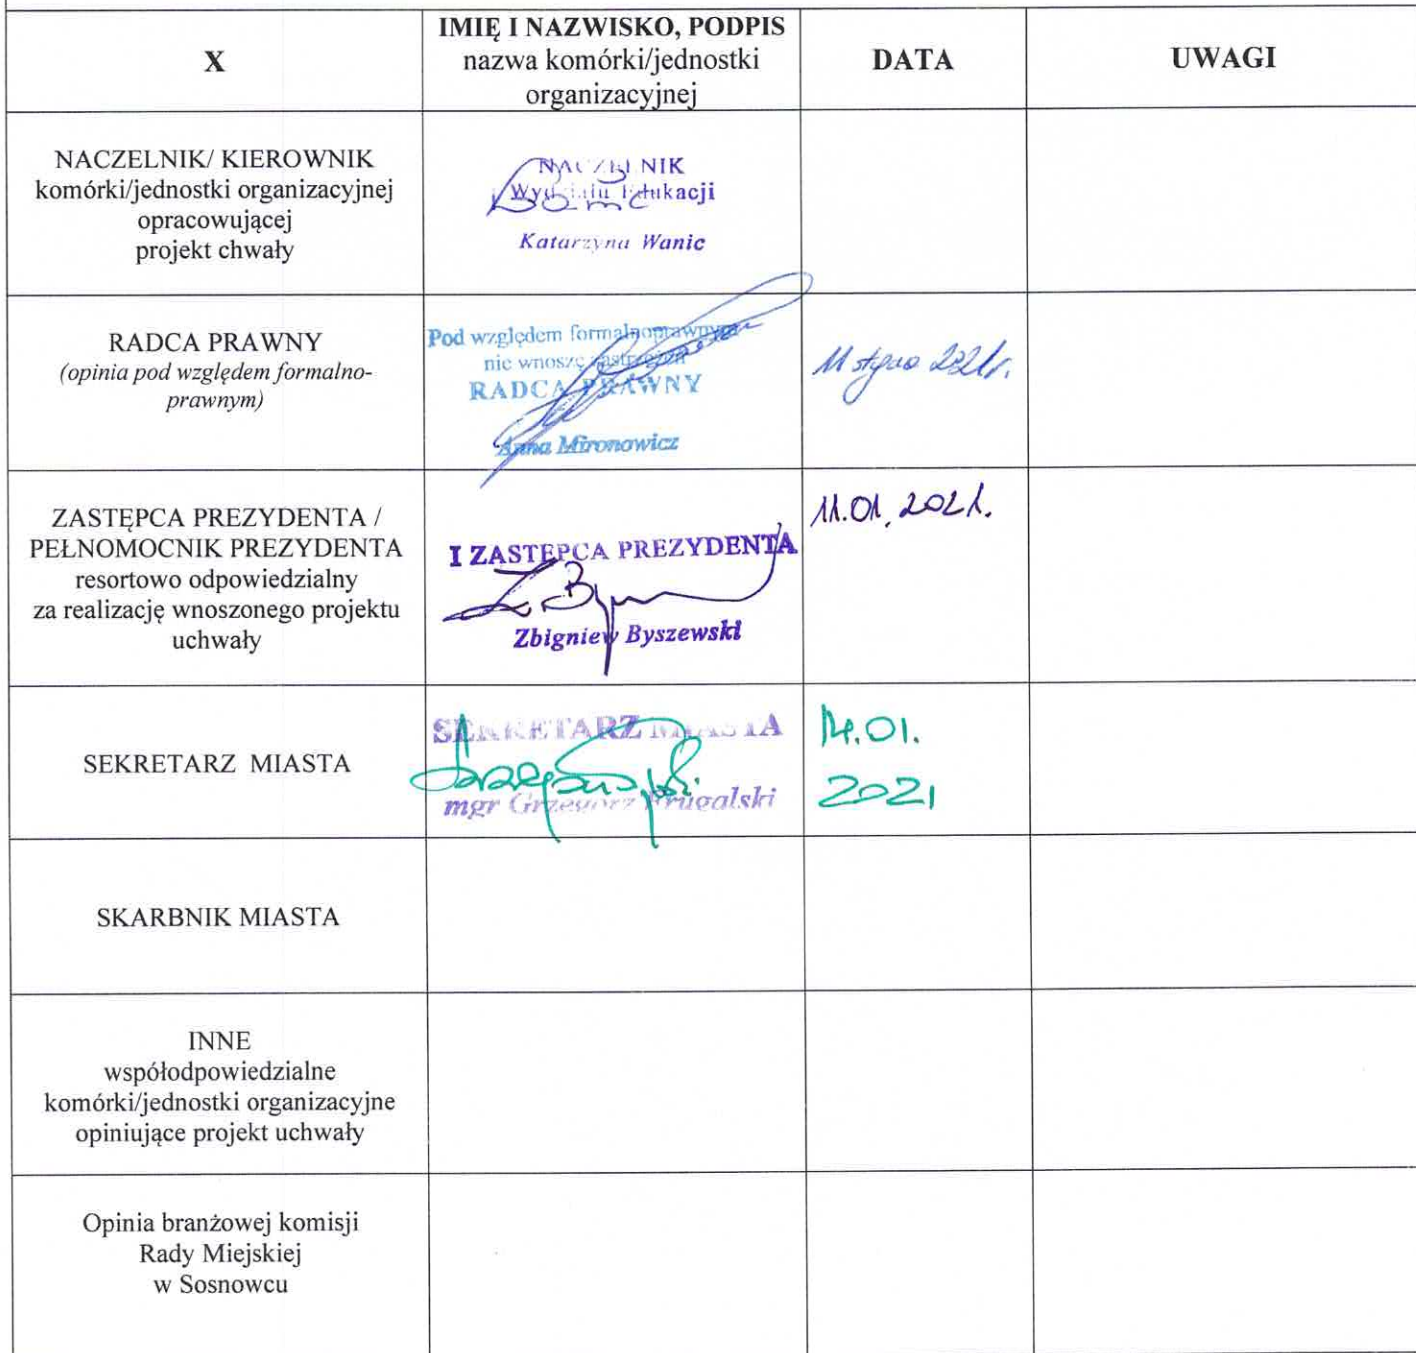 X
IMIĘ I NAZWISKO, PODPIS
nazwa komórki/jednostki
organizacyjnej
DATA
UWAGI
NACZELNIK/ KIEROWNIK
komórki/jednostki organizacyjnej
opracowującej
projekt chwały
NACZELNIK
Wydziału Edukacji
Katarzyna Wanic
RADCA PRAWNY
(opinia pod względem formalno-
prawnym)
Pod względem formalnoprawnym
nie wnoszę zastrzeżeń
RADCA PRAWNY
Anna Mironowicz
11 stycznia 2021r.
ZASTĘPCA PREZYDENTA /
PEŁNOMOCNIK PREZYDENTA
resortowo odpowiedzialny
za realizację wnoszonego projektu
uchwały
I ZASTĘPCA PREZYDENTA
Zbigniew Byszewski
11.01.2021.
SEKRETARZ MIASTA
SEKRETARZ MIASTA
mgr Grzegorz Frugalski
14.01.
2021
SKARBNIK MIASTA
INNE
współodpowiedzialne
komórki/jednostki organizacyjne
opiniujące projekt uchwały
Opinia branżowej komisji
Rady Miejskiej
w Sosnowcu